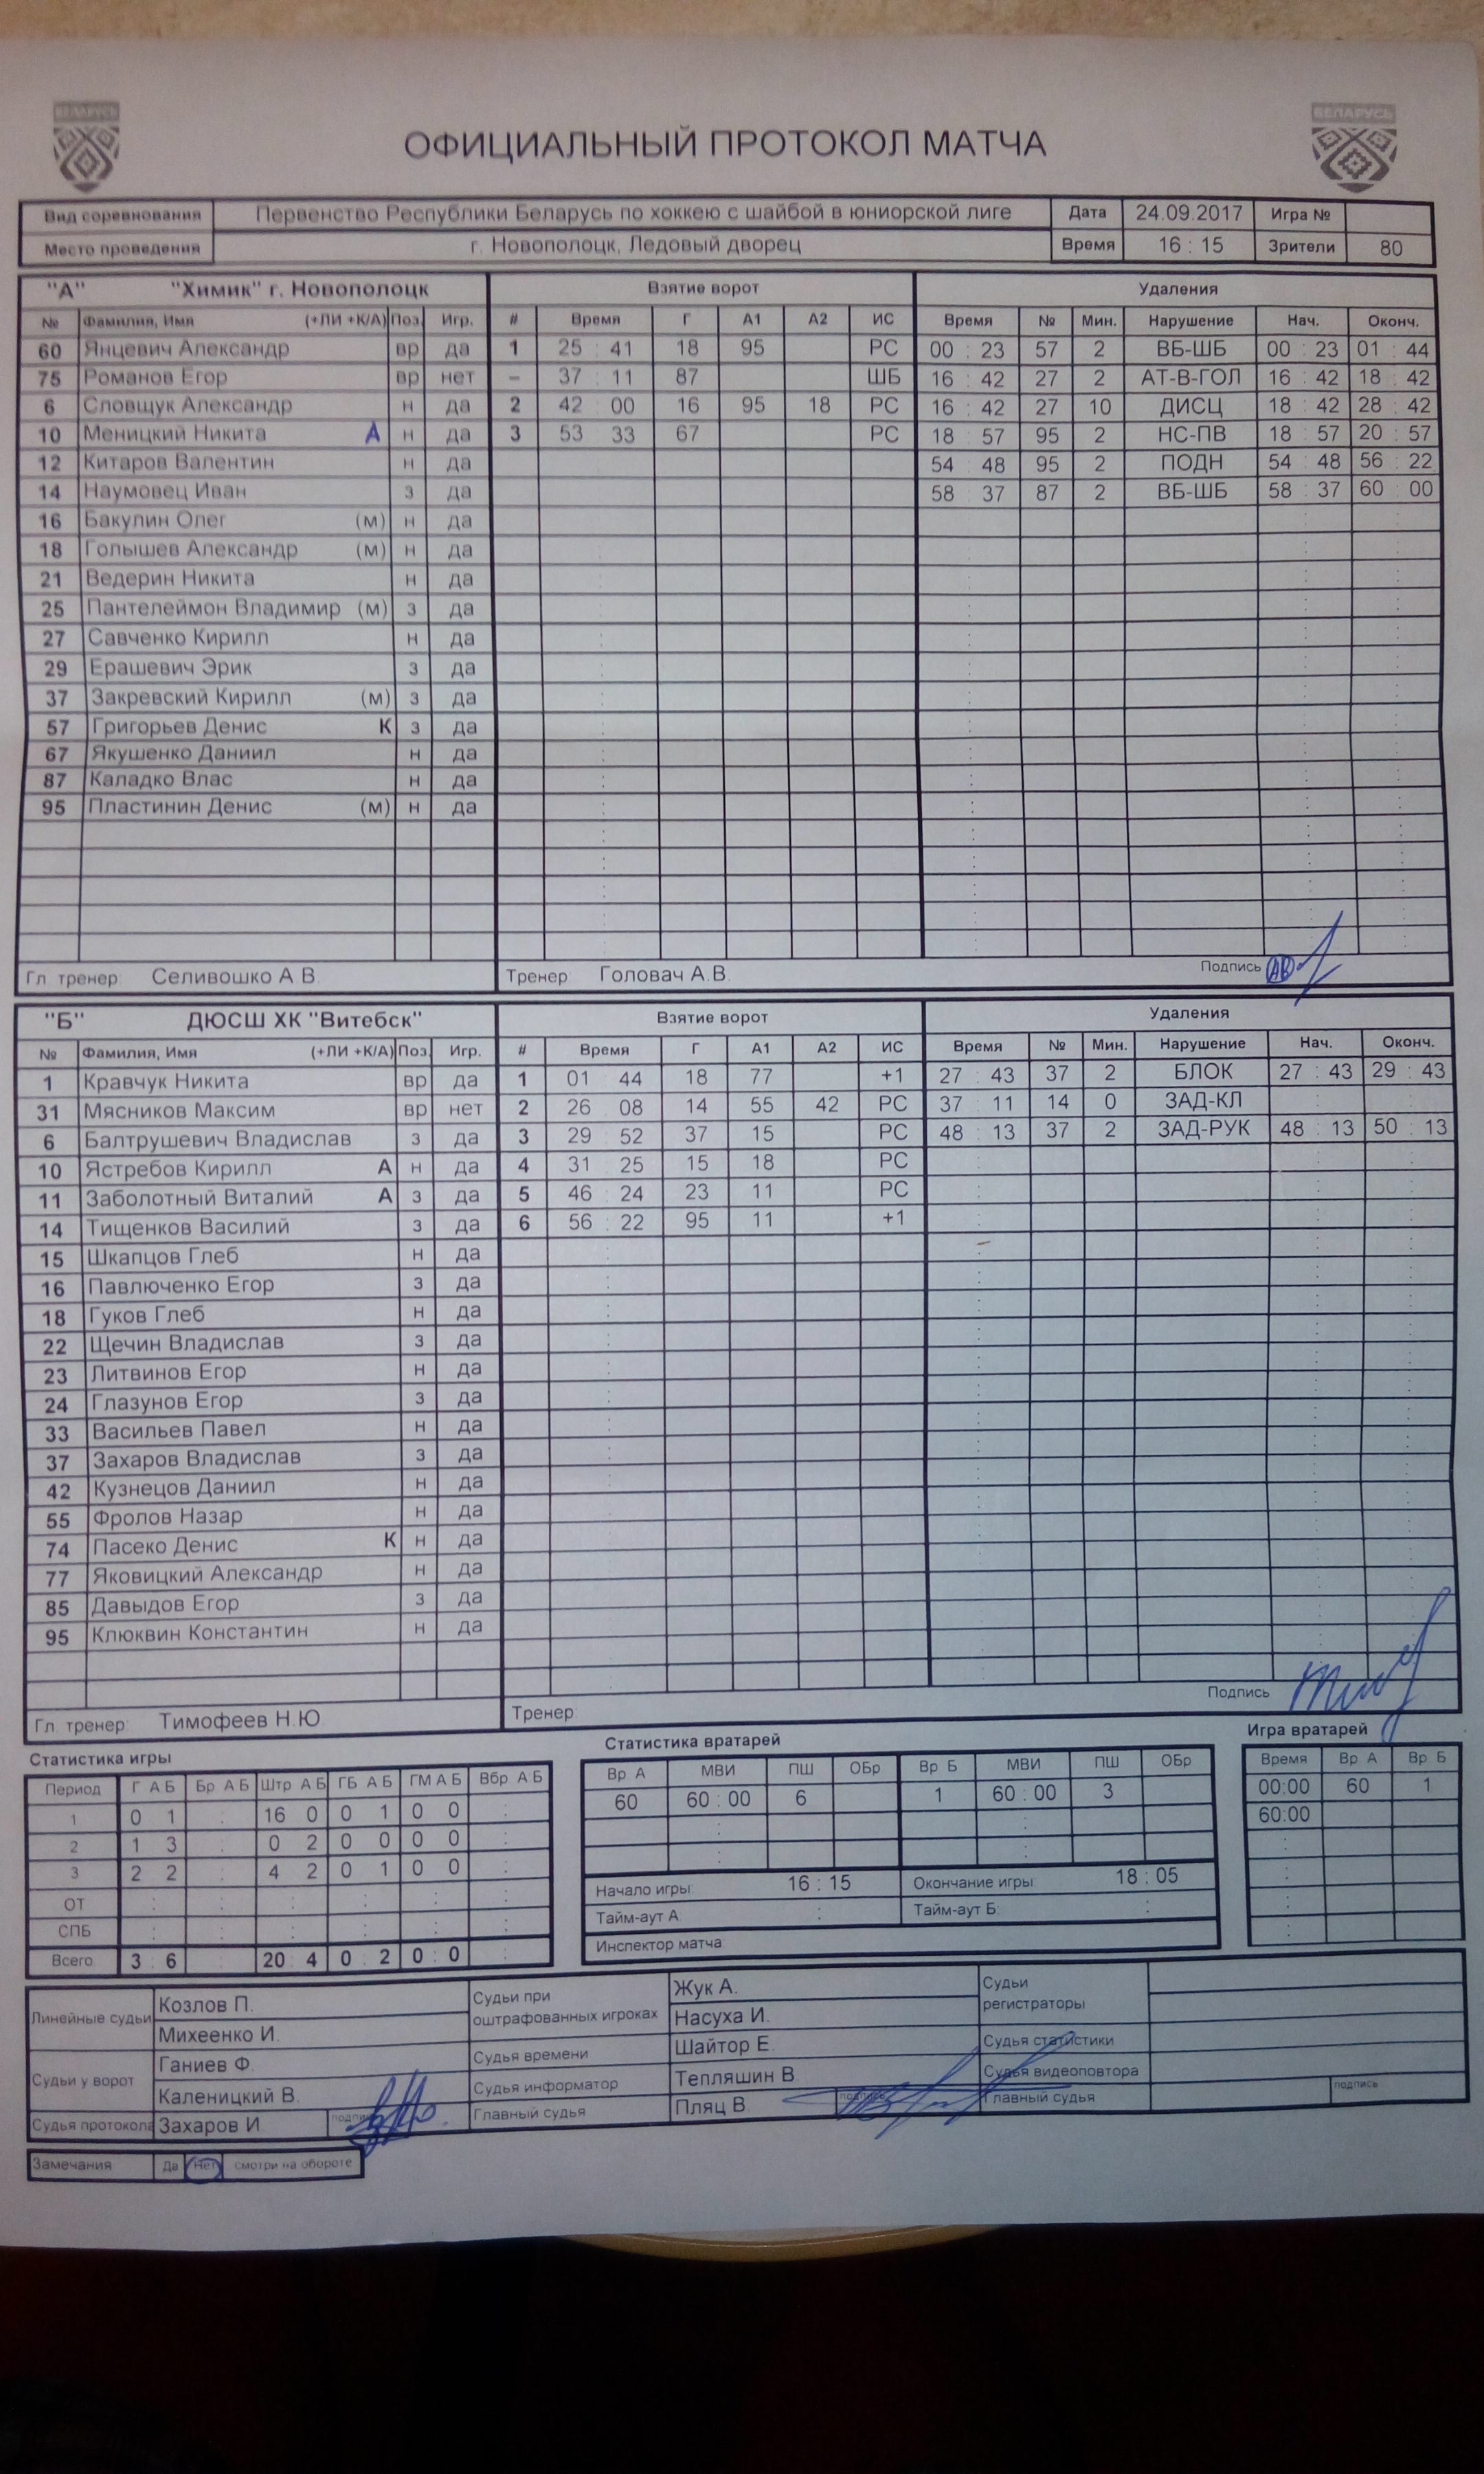 БЕЛАРУСЬ БЕЛАРУСЬ
ОФИЦИАЛЬНЫЙ ПРОТОКОЛ МАТЧА
Вид соревнования Первенство Республики Беларусь по хоккею с шайбой в юниорской лиге Дата 24.09.2017 Игра №
Место проведения г. Новополоцк, Ледовый дворец Время 16 : 15 Зрители 80
"А" "Химик" г. Новополоцк Взятие ворот Удаления
№ Фамилия, Имя (+ЛИ +К/А) Поз. Игр. # Время Г А1 А2 ИС Время № Мин. Нарушение Нач. Оконч.
60 Янцевич Александр вр да 1 25 : 41 18 95 РС 00 : 23 57 2 ВБ-ШБ 00 : 23 01 : 44
75 Романов Егор вр нет – 37 : 11 87 ШБ 16 : 42 27 2 АТ-В-ГОЛ 16 : 42 18 : 42
6 Словщук Александр н да 2 42 : 00 16 95 18 РС 16 : 42 27 10 ДИСЦ 18 : 42 28 : 42
10 Меницкий Никита А н да 3 53 : 33 67 РС 18 : 57 95 2 НС-ПВ 18 : 57 20 : 57
12 Китаров Валентин н да 54 : 48 95 2 ПОДН 54 : 48 56 : 22
14 Наумовец Иван з да 58 : 37 87 2 ВБ-ШБ 58 : 37 60 : 00
16 Бакулин Олег (м) н да
18 Голышев Александр (м) н да
21 Ведерин Никита н да
25 Пантелеймон Владимир (м) з да
27 Савченко Кирилл н да
29 Ерашевич Эрик з да
37 Закревский Кирилл (м) з да
57 Григорьев Денис К з да
67 Якушенко Даниил н да
87 Каладко Влас н да
95 Пластинин Денис (м) н да
Гл. тренер: Селивошко А.В. Тренер: Головач А.В. Подпись
"Б" ДЮСШ ХК "Витебск" Взятие ворот Удаления
№ Фамилия, Имя (+ЛИ +К/А) Поз. Игр. # Время Г А1 А2 ИС Время № Мин. Нарушение Нач. Оконч.
1 Кравчук Никита вр да 1 01 : 44 18 77 +1 27 : 43 37 2 БЛОК 27 : 43 29 : 43
31 Мясников Максим вр нет 2 26 : 08 14 55 42 РС 37 : 11 14 0 ЗАД-КЛ
6 Балтрушевич Владислав з да 3 29 : 52 37 15 РС 48 : 13 37 2 ЗАД-РУК 48 : 13 50 : 13
10 Ястребов Кирилл А н да 4 31 : 25 15 18 РС
11 Заболотный Виталий А з да 5 46 : 24 23 11 РС
14 Тищенков Василий з да 6 56 : 22 95 11 +1
15 Шкапцов Глеб н да
16 Павлюченко Егор з да
18 Гуков Глеб н да
22 Щечин Владислав з да
23 Литвинов Егор н да
24 Глазунов Егор з да
33 Васильев Павел н да
37 Захаров Владислав з да
42 Кузнецов Даниил н да
55 Фролов Назар н да
74 Пасеко Денис К н да
77 Яковицкий Александр н да
85 Давыдов Егор з да
95 Клюквин Константин н да
Гл. тренер: Тимофеев Н.Ю. Тренер: Подпись
Статистика игры Статистика вратарей Игра вратарей
Период Г А Б Бр А Б Штр А Б ГБ А Б ГМ А Б Вбр А Б Вр А МВИ ПШ ОБр Вр Б МВИ ПШ ОБр Время Вр А Вр Б
1 0 : 1 16 : 0 0 : 1 0 : 0 60 60 : 00 6 1 60 : 00 3 00:00 60 1
2 1 : 3 0 : 2 0 : 0 0 : 0 60:00
3 2 : 2 4 : 2 0 : 1 0 : 0 Начало игры: 16 : 15 Окончание игры: 18 : 05
ОТ Тайм-аут А: Тайм-аут Б:
СПБ Инспектор матча
Всего 3 : 6 20 : 4 0 : 2 0 : 0
Линейные судьи Козлов П. Судьи при оштрафованных игроках Жук А. Судьи регистраторы
Михеенко И. Насуха И.
Судьи у ворот Ганиев Ф. Судья времени Шайтор Е. Судья статистики
Каленицкий В. Судья информатор Тепляшин В. Судья видеоповтора
Судья протокола Захаров И. подпись Главный судья Пляц В. подпись Главный судья подпись
Замечания Да Нет смотри на обороте